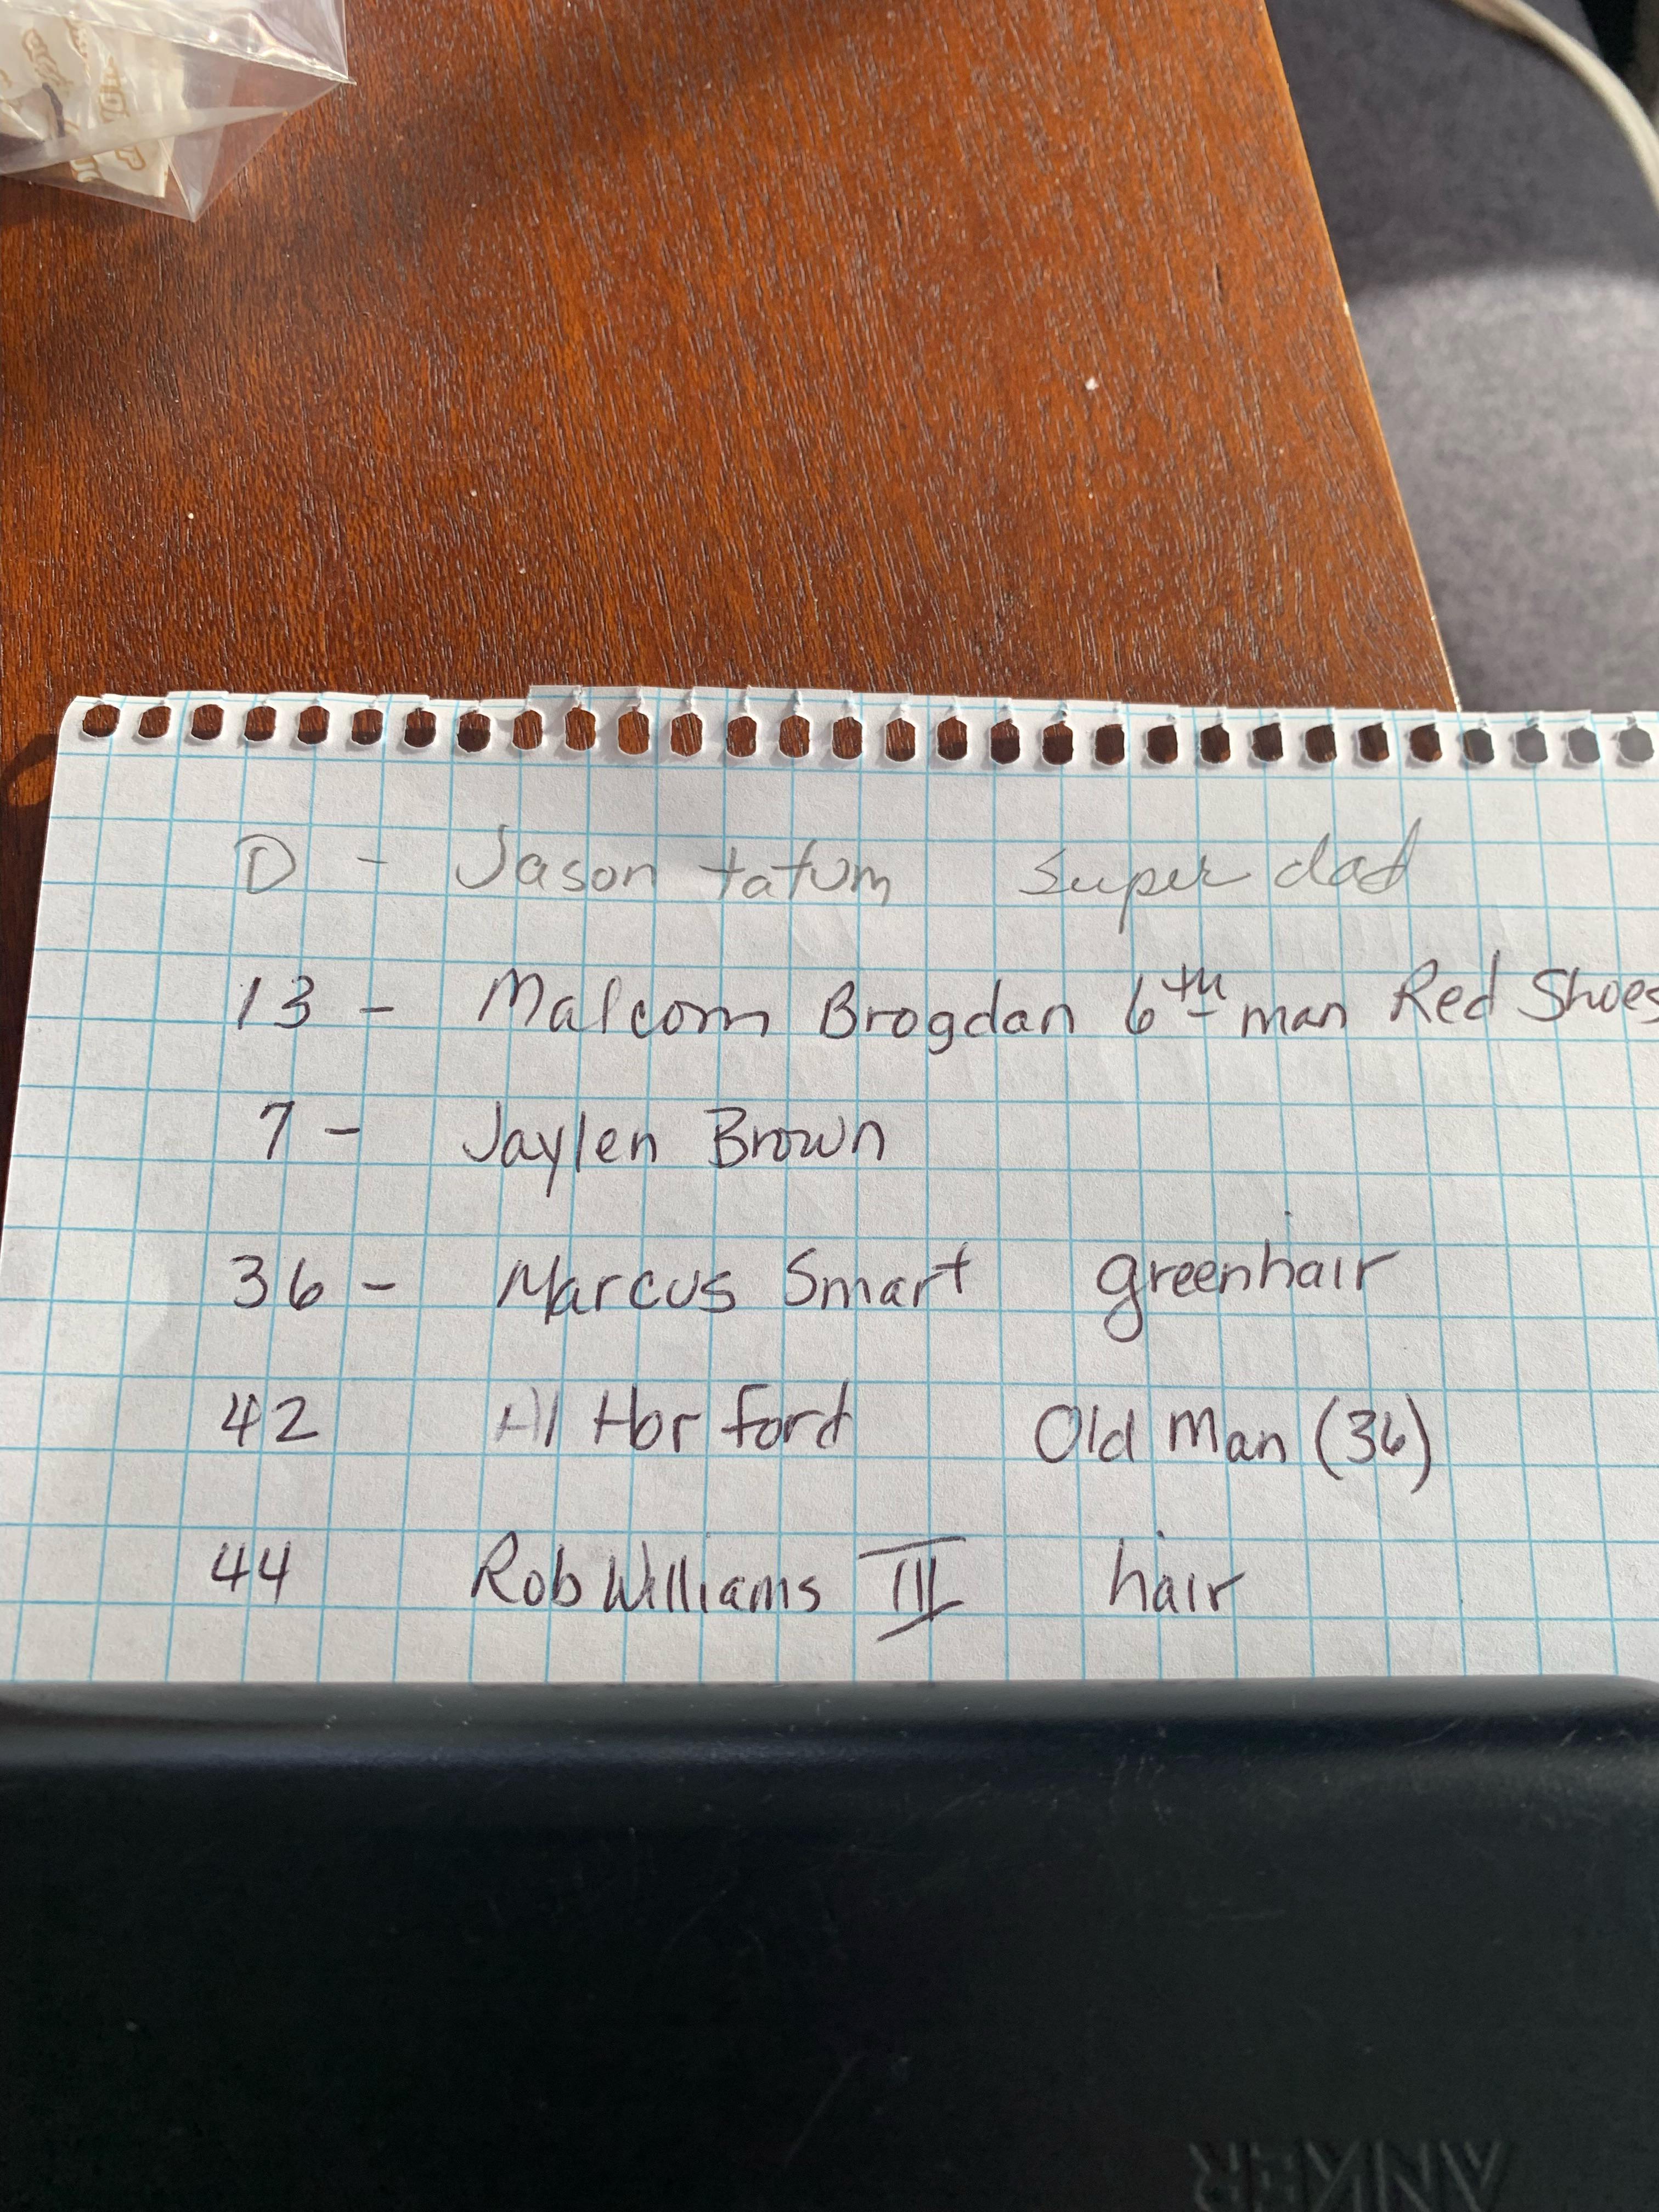 0 - Jason tatum super dad
13 - Malcom Brogdan 6th man Red Shoes
7 - Jaylen Brown
36 - Marcus Smart greenhair
42 Al Horford Old Man (36)
44 Rob Williams III hair
ANKER